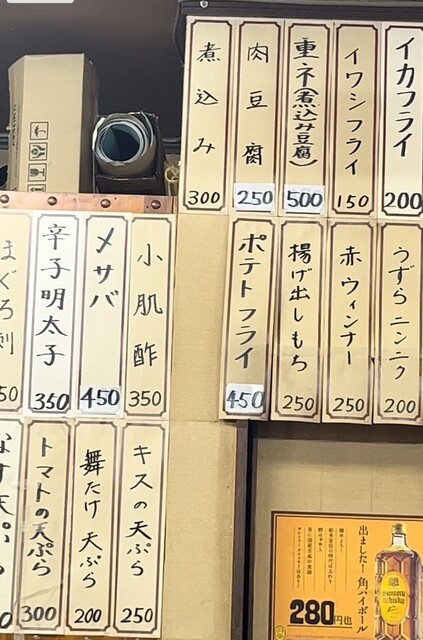 イカフライ
200
イワシフライ
150
重ネ(煮込み豆腐)
500
肉豆腐
250
煮込み
300
うずらニンニク
200
赤ウィンナー
250
揚げ出しもち
250
ポテトフライ
450
小肌酢
350
メサバ
450
辛子明太子
350
まぐろ刺
50
キスの天ぷら
250
舞たけ天ぷら
200
トマトの天ぷら
300
なす天ぷら
0
出ました!角ハイボール
280円也
Suntory
whisky